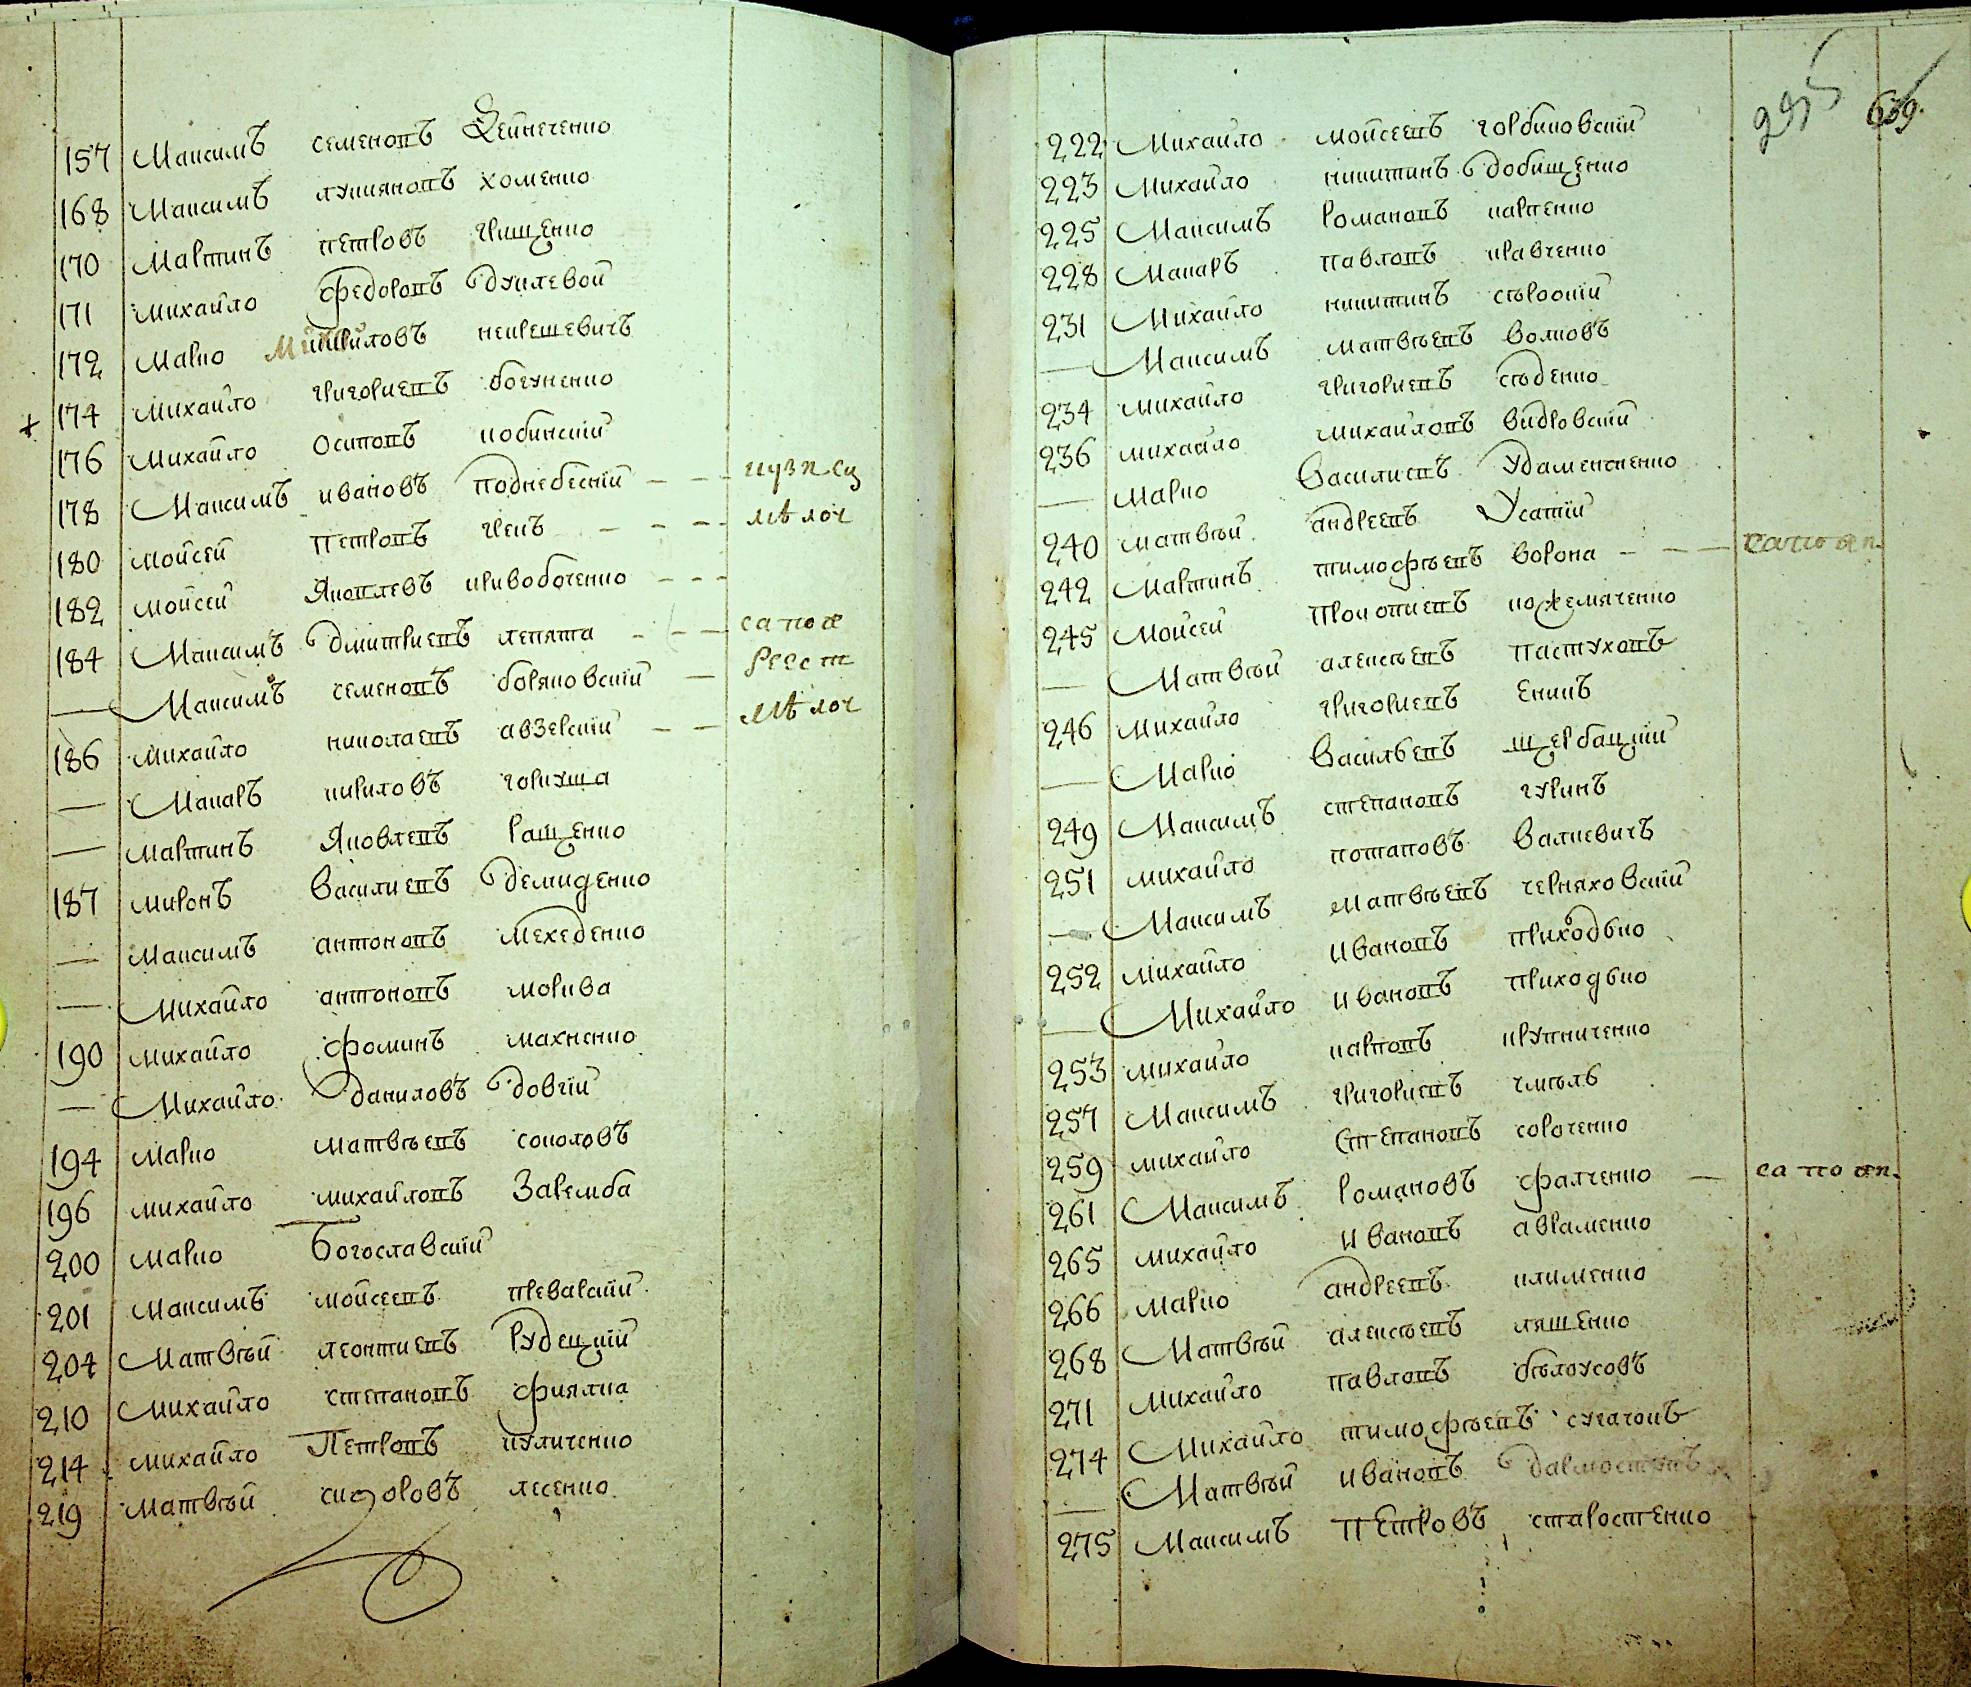 157 Максимъ семеновъ Вейнеченко
168 Максимъ лукияновъ хоменко
170 Мартинъ петровъ грищенко
171 михайло федоровъ дуплевой
172 марко некрешевичъ
174 михайло григориевъ богуненко
176 Михайло осиповъ кобинский
178 Максимъ ивановъ поднебесний
180 мойсей петровъ грекъ – – – мѣлоч
182 мойсей Яковлевъ кривобоченко – – –
184 Максимъ дмитриевъ лепята – – – сапож
— Максимъ семеновъ боряновский – реест
186 михайло николаевъ авзерский – – мѣлоч
— Макаръ кириловъ горкуша
— мартинъ Яковлевъ ращенко
187 миронъ василиевъ демиденко
— Максимъ антоновъ мехеденко
— Михайло антоновъ морква
190 михайло фоминъ махненко
— Михайло даниловъ довгий
194 марко матвѣевъ соколовъ
196 михайло михайловъ заремба
200 марко Богославский
201 Максимъ мойсеевъ преварский
204 Матвѣй леонтиевъ рудецкий
210 Михайло степановъ фиялка
214 михайло Петровъ куличенко
219 матвѣй сидоровъ лесенко
295 659
222 Михайло мойсеевъ горбиковский
223 михайло никитинъ добищенко
225 Максимъ романовъ карпенко
228 Макаръ павловъ кравченко
231 Михайло никитинъ
— Максимъ матвѣевъ волковъ
234 михайло григориевъ сѣденко
236 михайло михайловъ видровский
— марко василиевъ
240 матвѣй андреевъ Усатий
242 Мартинъ тимофѣевъ ворона – – – сапожн.
245 мойсей прокопиевъ кожемяченко
— Матвѣй алексѣевъ пастуховъ
246 михайло григориевъ еникъ
— Марко васильевъ щербацкий
249 Максимъ степановъ гуринъ
251 михайло потаповъ валкевичъ
— Максимъ матвѣевъ черняховский
252 михайло ивановъ приходько
— Михайло ивановъ приходько
253 михайло карповъ крупниченко
257 Максимъ григориевъ чмѣль
259 михайло степановъ сороченко
261 Максимъ романовъ фалченко – сапожн.
265 михайло ивановъ авраменко
266 марко андреевъ клименко
268 Матвѣй алексѣевъ лященко
271 михайло павловъ бѣлоусовъ
274 Михайло тимофѣевъ сугачовъ
— Матвѣй ивановъ
275 Максимъ петровъ старостенко